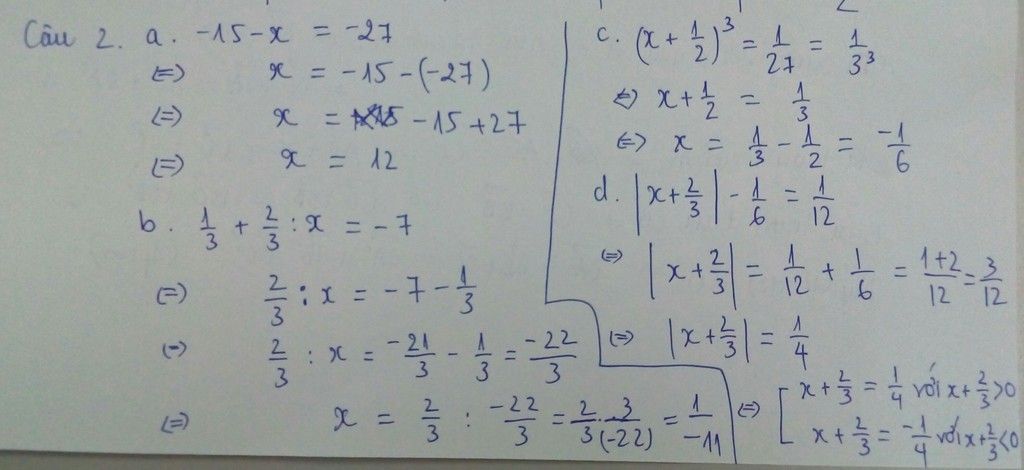 Câu 2. a. -15-x = -27
(=) x = -15-(-27)
(=) x = -15+27
(=) x = 12
b. 1/3 + 2/3 : x = -7
(=) 2/3 : x = -7 - 1/3
(=) 2/3 : x = -21/3 - 1/3 = -22/3
(=) x = 2/3 : -22/3 = 2/3 . 3/(-22) = 1/-11
c. (x + 1/2)^3 = 1/27 = 1/3^3
(=) x + 1/2 = 1/3
(=) x = 1/3 - 1/2 = -1/6
d. |x + 2/3| - 1/6 = 1/12
(=) |x + 2/3| = 1/12 + 1/6 = 1+2/12 = 3/12
(=) |x + 2/3| = 1/4
(=) [ x + 2/3 = 1/4 với x + 2/3 > 0
x + 2/3 = -1/4 với x + 2/3 < 0